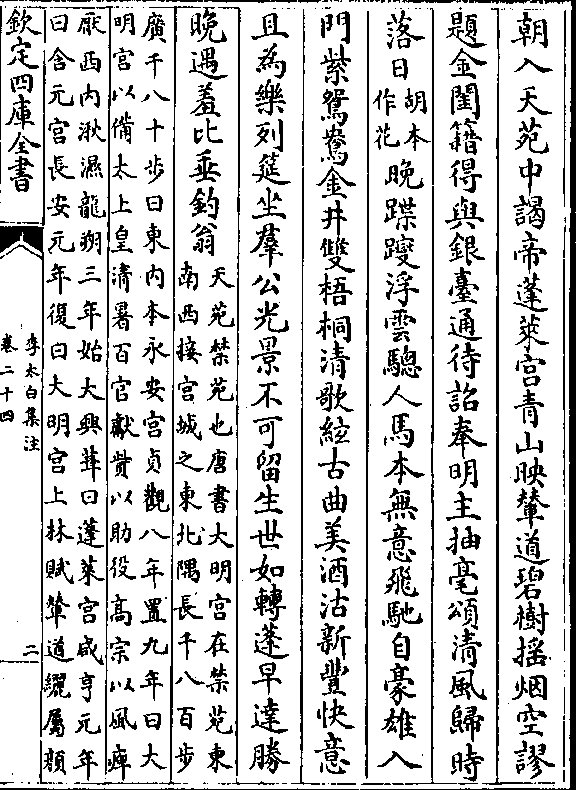 朝入天苑中謁帝蓬萊宮青山映輦道碧樹揺烟空謬
題金閨籍得與銀臺通待詔奉明主抽毫頌清風歸時
落日
胡本
作花
晩蹀躞浮雲驄人馬本無意飛馳自豪雄入
門紫鴛鴦金井雙梧桐清歌絃古曲美酒沽新豐快意
且為樂列筵坐羣公光景不可留生世如轉蓬早達勝
晩遇羞比垂釣翁
天苑禁苑也唐書大明宮在禁苑東
南西接宮城之東北隅長千八百步
廣千八十步曰東内本永安宮貞觀八年置九年曰大
明宮以備太上皇清暑百官獻貲以助役高宗以風痺
厭西内湫濕龍朔三年始大興葺曰蓬萊宮咸亨元年
曰含元宮長安元年復曰大明宮上林賦輦道纚屬顔
欽定四庫全書
李太白集注
卷二十四
二